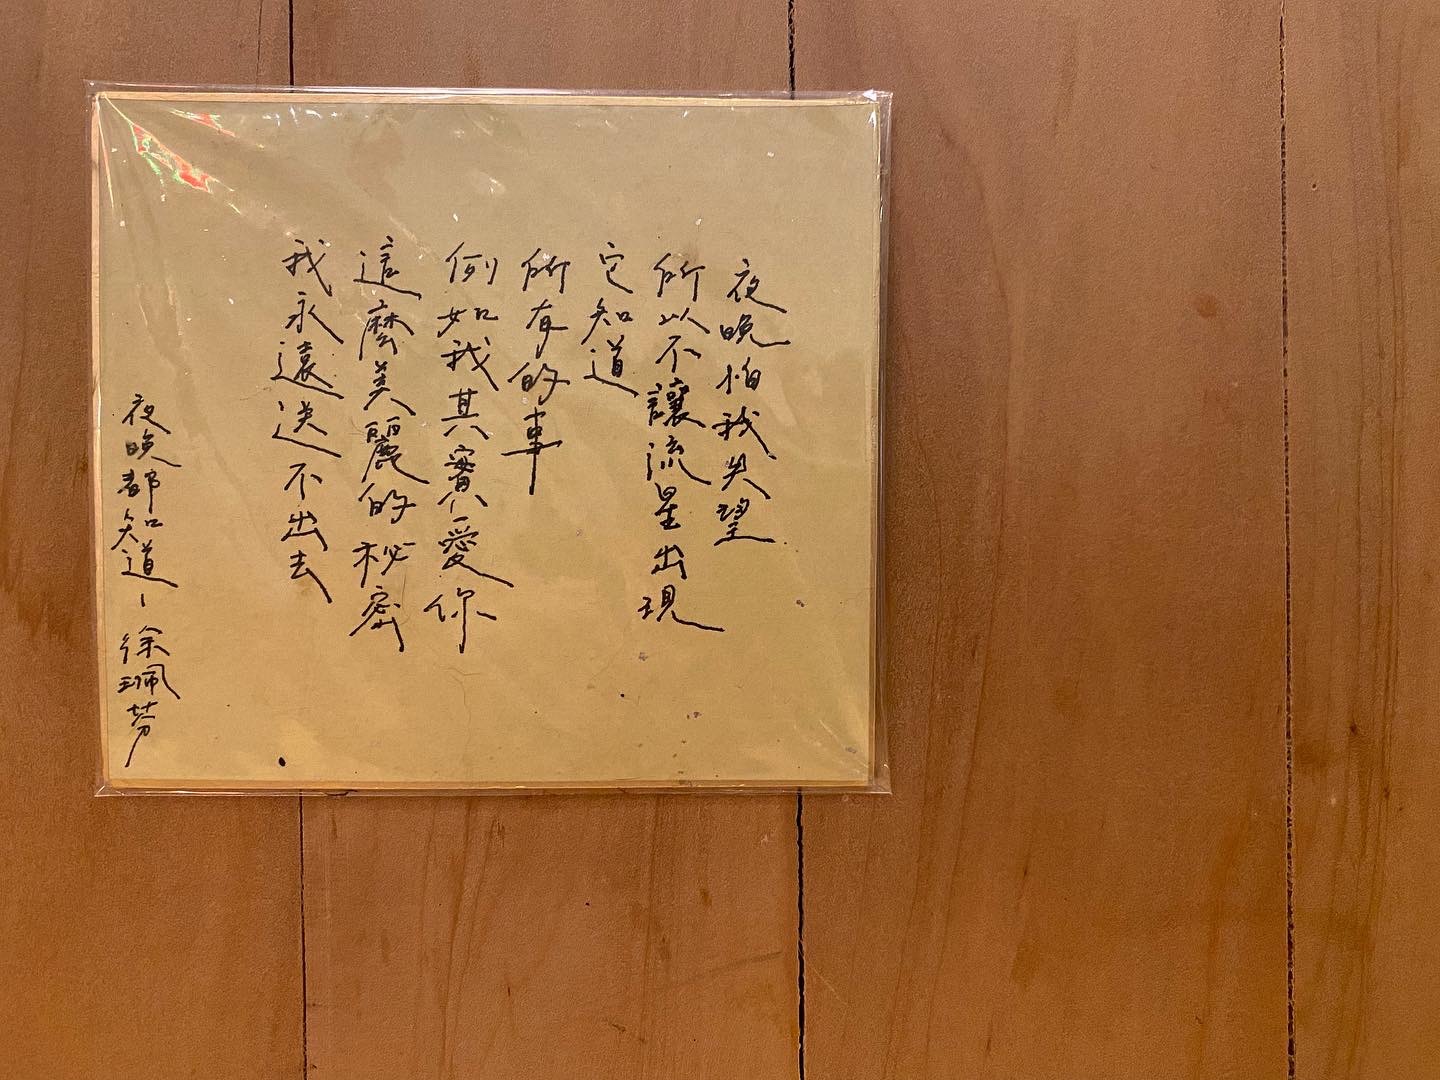 夜晚怕我失望
所以不讓流星出現
它知道
所有的事
例如我其實愛你
這麼美麗的秘密
我永遠送不出去
夜晚都知道－徐珮芬